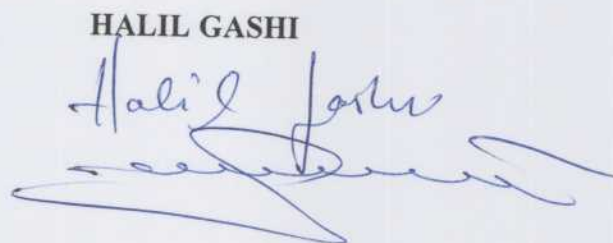 HALIL GASHI
Halil Gashi